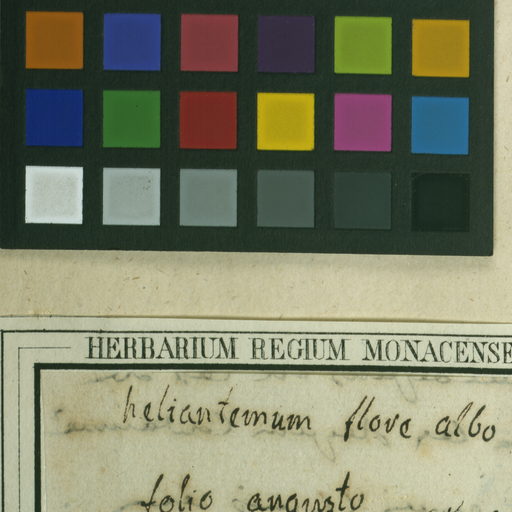 HERBARIUM REGIUM MONACENSE
heliantemum flore albo
folio angusto